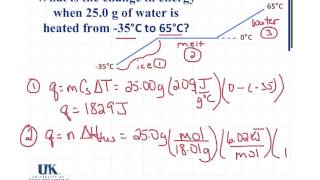 What is the change in energy
when 25.0 g of water is
heated from -35°C to 65°C?
65°C
water
③
0°C
melt
②
-35°C
ice ①
① q=mCsΔT = 25.00g(2.09J/g°C)(0-(-35)
q = 1829J
② q = n ΔHfus = 25.0g(mol/18.01g)(6.02kJ/mol)(1
UK